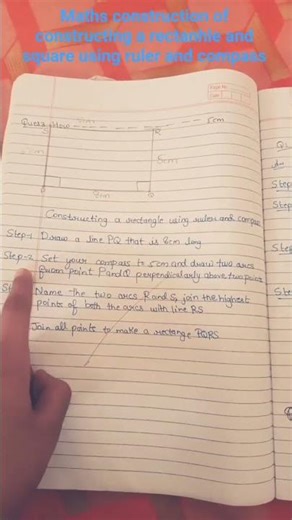 Maths construction of
constructing a rectanhle and
square using ruler and compass
Page No.
Date
5cm
R
5cm
8cm
Constructing a rectangle using ruler and compass
Step-1 Draw a line PQ that is 8cm long
Step-2 Set your compass to 5cm and draw two arcs
from point P and Q perpendicularly above two points
Name the two arcs R and S, join the highest
points of both the arcs with line RS
Join all points to make a rectange PQRS
Step
Step
Step